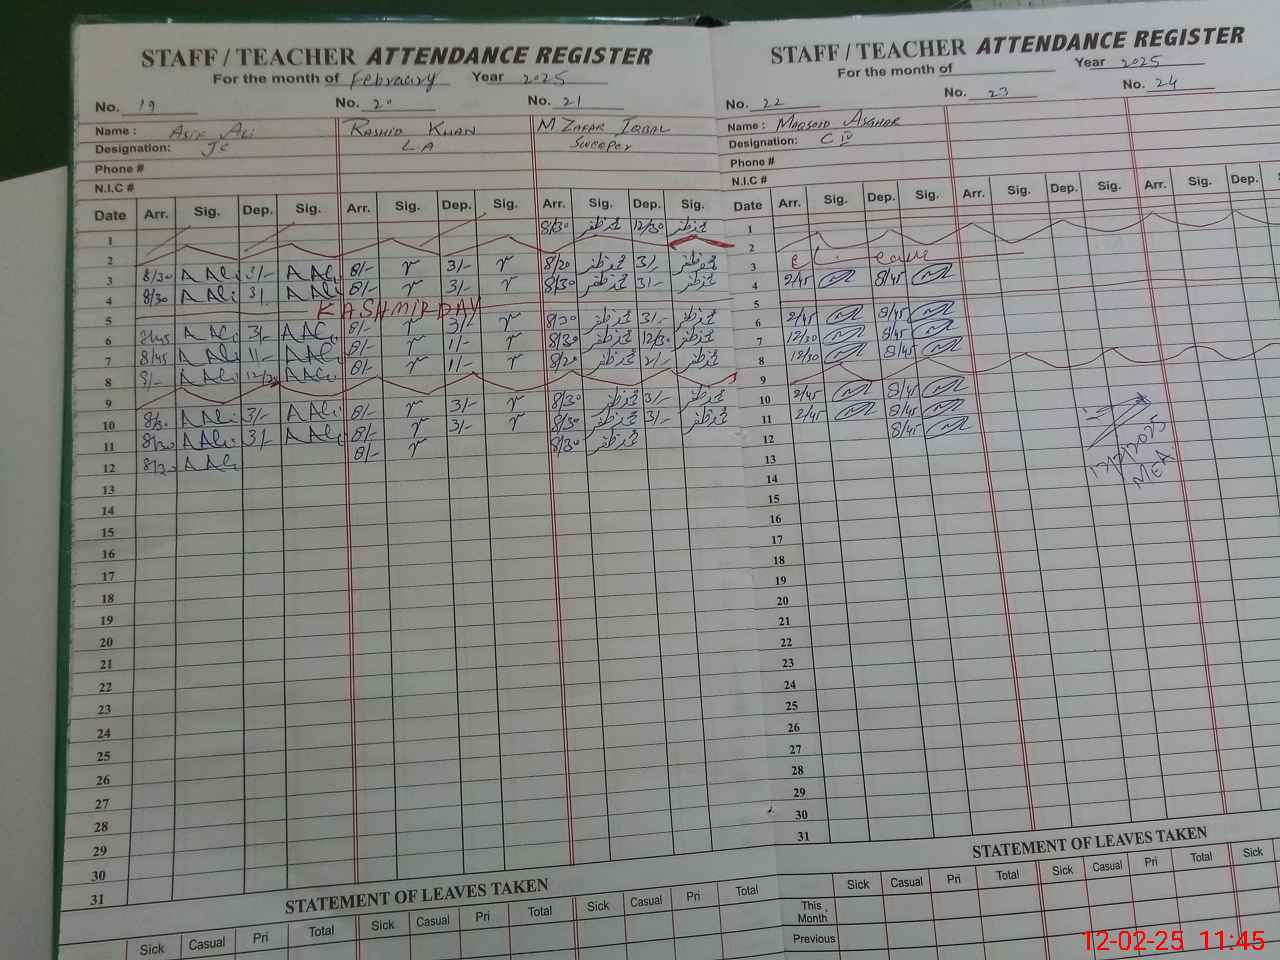 STAFF / TEACHER ATTENDANCE REGISTER
For the month of February Year 2025
No. 19 No. 20 No. 21
Name : Asif Ali RASHID KHAN M ZAFAR IQBAL
Designation: JC L A Sweeper
Phone #
N.I.C #
Date Arr. Sig. Dep. Sig. Arr. Sig. Dep. Sig. Arr. Sig. Dep. Sig.
1 8/30 محمد ظفر 12/30 محمد ظفر
2
3 8/30 A Ali 3/- A Ali 8/- r 3/- r 8/20 محمد ظفر 3/- محمد ظفر
4 8/30 A Ali 3/- A Ali 8/- r 3/- r 8/30 محمد ظفر 3/- محمد ظفر
5 KASHMIR DAY
6 8/45 A Ali 3/- A Ali 8/- r 3/- r 8/30 محمد ظفر 3/- محمد ظفر
7 8/45 A Ali 11/- A Ali 8/- r 11/- r 8/30 محمد ظفر 12/30 محمد ظفر
8 8/- A Ali 12/30 A Ali 8/- r 11/- r 8/20 محمد ظفر 2/- محمد ظفر
9
10 8/30 A Ali 3/- A Ali 8/- r 3/- r 8/30 محمد ظفر 3/- محمد ظفر
11 8/30 A Ali 3/- A Ali 8/- r 3/- r 8/30 محمد ظفر 3/- محمد ظفر
12 8/30 A Ali 8/- r 8/30 محمد ظفر
13
14
15
16
17
18
19
20
21
22
23
24
25
26
27
28
29
30
31
STATEMENT OF LEAVES TAKEN
Sick Casual Pri Total Sick Casual Pri Total Sick Casual Pri Total
STAFF / TEACHER ATTENDANCE REGISTER
For the month of Year 2025
No. 22 No. 23 No. 24
Name : MAQSOOD ASGHAR
Designation: C IV
Phone #
N.I.C #
Date Arr. Sig. Dep. Sig. Arr. Sig. Dep. Sig. Arr. Sig. Dep.
1
2
3 leave
4 2/45 8/45
5
6 2/45 8/45
7 12/30 8/45
8 12/30 8/45
9
10 2/45 8/45
11 2/45 8/45
12 8/45
13 12/2/2025
14 MEA.
15
16
17
18
19
20
21
22
23
24
25
26
27
28
29
30
31
STATEMENT OF LEAVES TAKEN
Sick Casual Pri Total Sick Casual Pri Total Sick
This Month
Previous
12-02-25 11:45